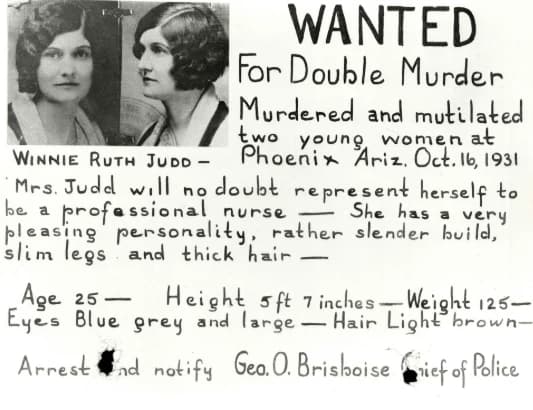 WANTED
For Double Murder
Murdered and mutilated
two young women at
Phoenix Ariz. Oct. 16, 1931
WINNIE RUTH JUDD —
Mrs. Judd will no doubt represent herself to
be a professional nurse — She has a very
pleasing personality, rather slender build,
slim legs and thick hair —
Age 25 — Height 5 ft 7 inches — Weight 125 —
Eyes Blue grey and large — Hair Light brown —
Arrest And notify Geo. O. Brisboise Chief of Police